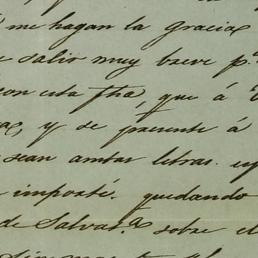 me hagan la gracia
salio muy breve p.ª
con esta fha, que á
y se presente á
sean ambas letras.
importe. quedando
de Salvas.ª sobre el